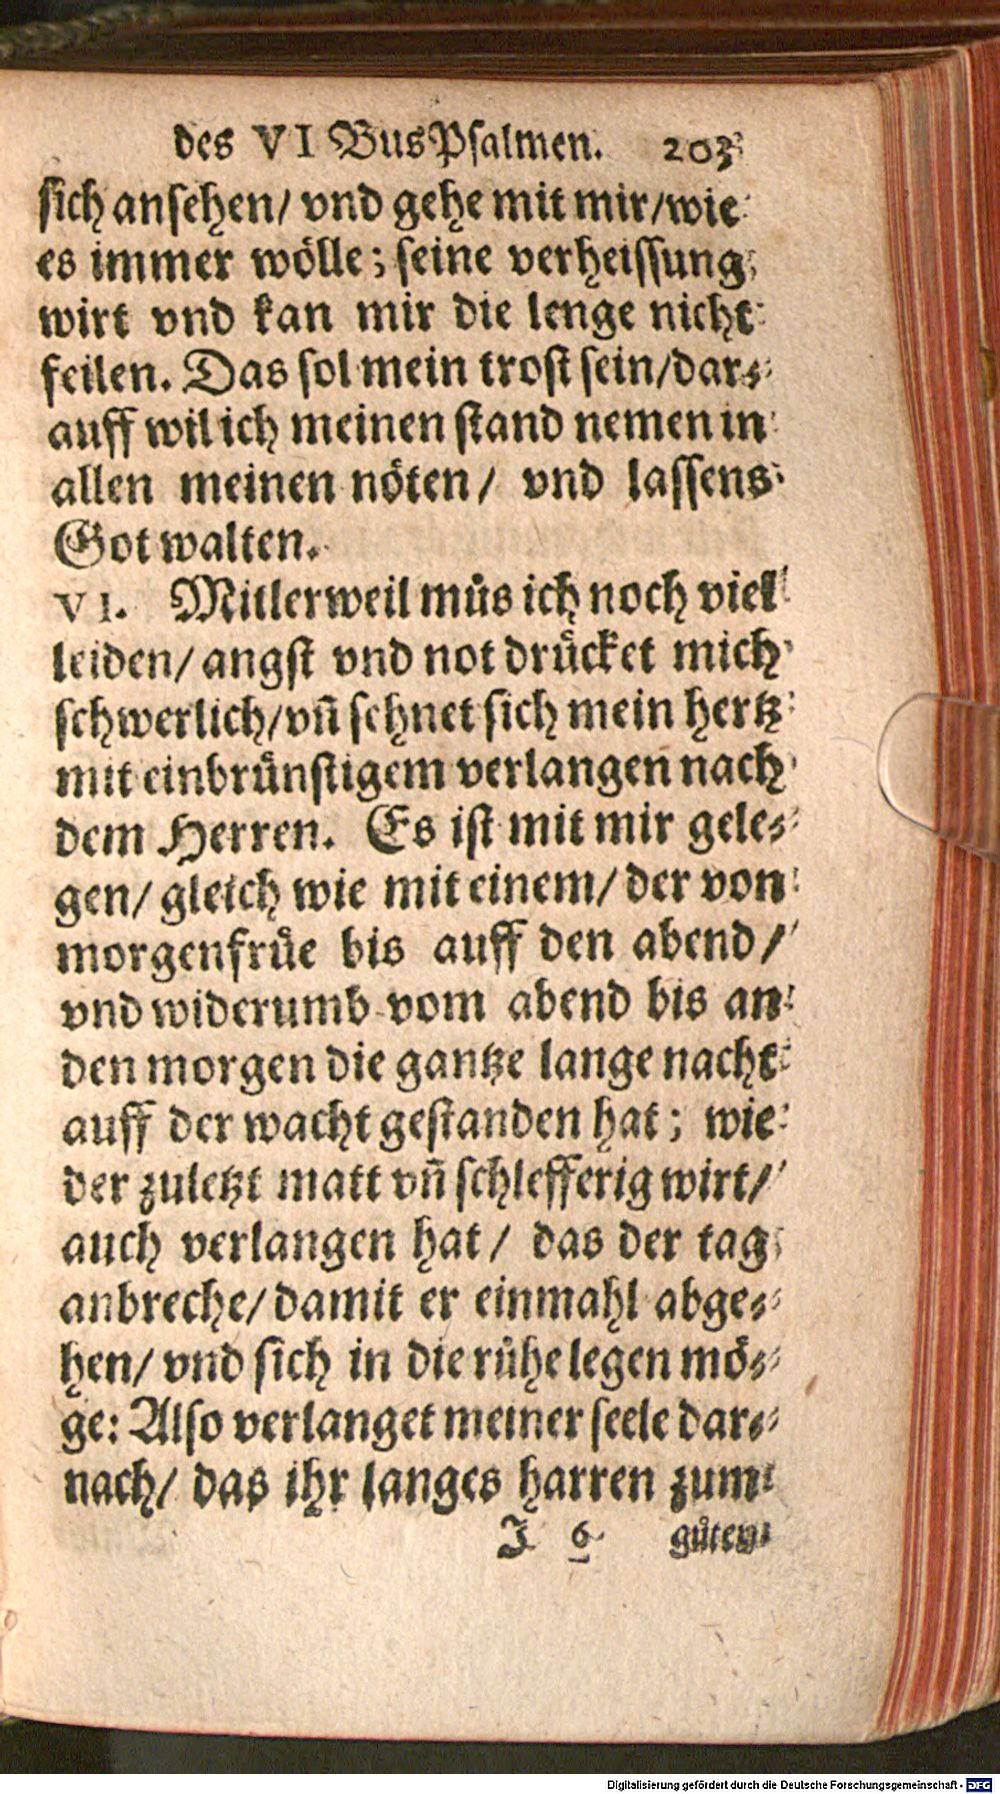 des VI BusPsalmen. 203
sich ansehen/ vnd gehe mit mir/wie
es immer wölle; seine verheissung
wirt vnd kan mir die lenge nicht
feilen. Das sol mein trost sein/dar⸗
auff wil ich meinen stand nemen in
allen meinen nöten/ vnd lassens
Got walten.
VI. Mitlerweil můs ich noch viel
leiden/ angst vnd not drücket mich
schwerlich/vñ sehnet sich mein hertz
mit einbrünstigem verlangen nach
dem Herren. Es ist mit mir gele⸗
gen/ gleich wie mit einem/ der von
morgenfrüe bis auff den abend/
vnd widerumb vom abend bis an
den morgen die gantze lange nacht
auff der wacht gestanden hat; wie
der zuletzt matt vñ schlefferig wirt/
auch verlangen hat/ das der tag
anbreche/ damit er einmahl abge⸗
hen/ vnd sich in die růhe legen mö⸗
ge: Also verlanget meiner seele dar⸗
nach/ das ihr langes harren zum
I 6 gůten
Digitalisierung gefördert durch die Deutsche Forschungsgemeinschaft - DFG